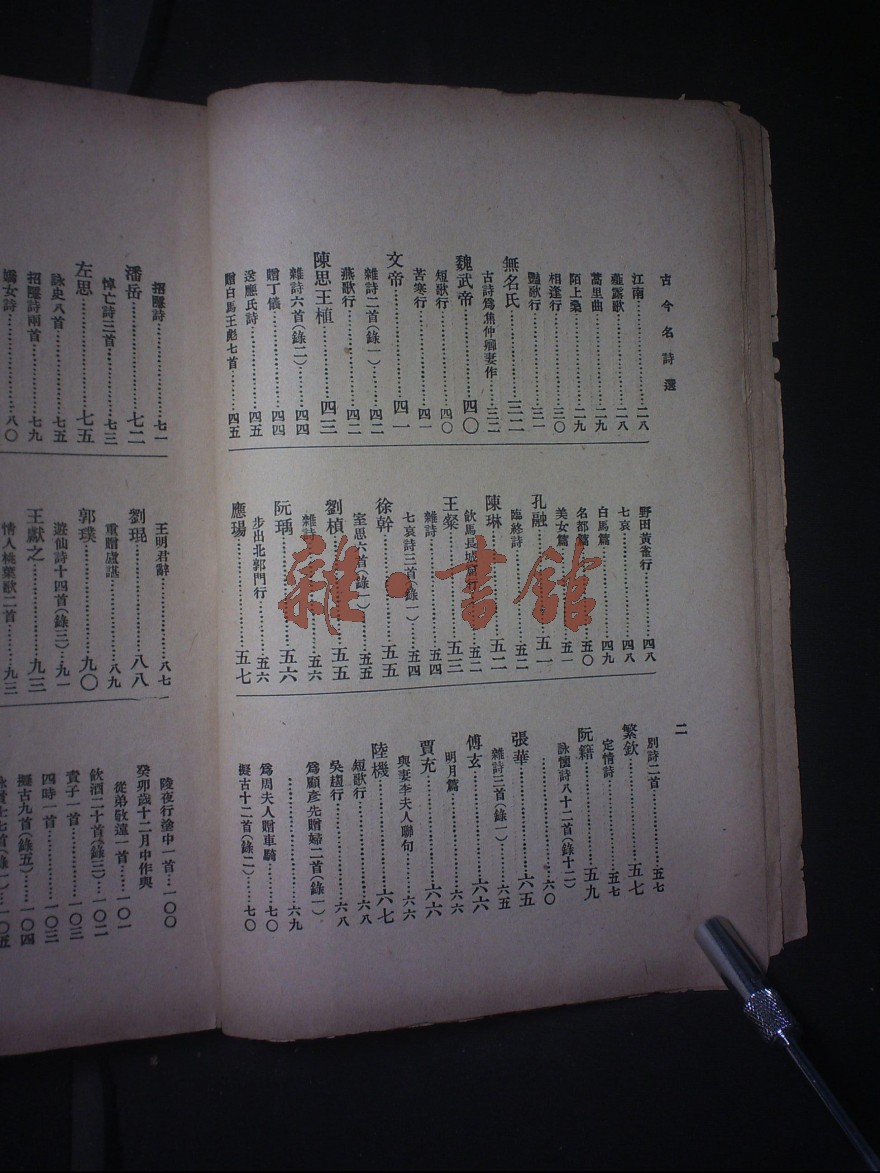 古今名詩選
二
江南……二八
薤露歌……二八
蒿里曲……二九
陌上桑……二九
相逢行……三〇
豔歌行……三一
無名氏……三二
古詩爲焦仲卿妻作……三二
魏武帝……四〇
短歌行……四〇
苦寒行……四一
文帝……四一
雜詩二首(錄一)……四二
燕歌行……四二
陳思王植……四三
雜詩六首(錄二)……四四
贈丁儀……四四
送應氏詩……四五
贈白馬王彪七首……四五
野田黃雀行……四八
七哀……四八
白馬篇……四九
名都篇……五〇
美女篇……五一
孔融……五一
臨終詩……五二
陳琳……五二
飲馬長城窟行……五二
王粲……五三
雜詩……五四
七哀詩三首(錄一)……五四
徐幹……五五
室思六首(錄一)……五五
劉楨……五五
雜詩……五六
阮瑀……五六
步出北郭門行……五六
應瑒……五七
別詩二首……五七
繁欽……五七
定情詩……五七
阮籍……五九
詠懷詩八十二首(錄十二)
……六〇
張華……六五
雜詩三首(錄一)……六五
傅玄……六六
明月篇……六六
賈充……六六
與妻李夫人聯句……六六
陸機……六七
短歌行……六八
吳趨行……六八
爲顧彥先贈婦二首(錄一)
……六九
爲周夫人贈車騎……七〇
擬古十二首(錄二)……七〇
招隱詩……七一
潘岳……七二
悼亡詩三首……七三
左思……七五
詠史八首……七五
招隱詩兩首……七九
嬌女詩……八〇
王明君辭……八七
劉琨……八八
重贈盧諶……八九
郭璞……九〇
遊仙詩十四首(錄三)……九一
王獻之……九三
情人桃葉歌二首……九三
陵夜行塗中一首…一〇〇
癸卯歲十二月中作與
從弟敬遠一首…一〇一
飲酒二十首(錄三)…一〇二
責子一首……一〇三
四時一首……一〇三
擬古九首(錄五)……一〇四
詠貧士七首(錄一)…一〇五
雜·書館